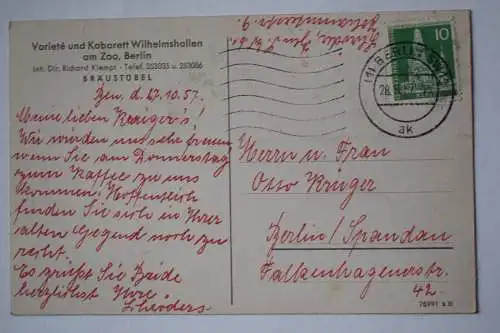 Varieté und Kabarett Wilhelmshallen
am Zoo, Berlin
Inh. Dir. Richard Klempt - Telef. 253035 u. 253086
BRÄUSTÜBEL
d. 27.10.57.
Meine lieben Krüger's!
Wir würden uns sehr freuen,
wenn Sie am Donnerstag
zum Kaffee zu uns
kommen. Hoffentlich
finden Sie sich in Ihrer
alten Gegend noch zu
recht.
Es grüßt Sie Beide
herzlichst Ihre
Schröders
10
(1) BERLIN SW
28.
ak
Herrn u. Frau
Otto Krüger
Berlin/Spandau
Falkenhagenerstr.
42.